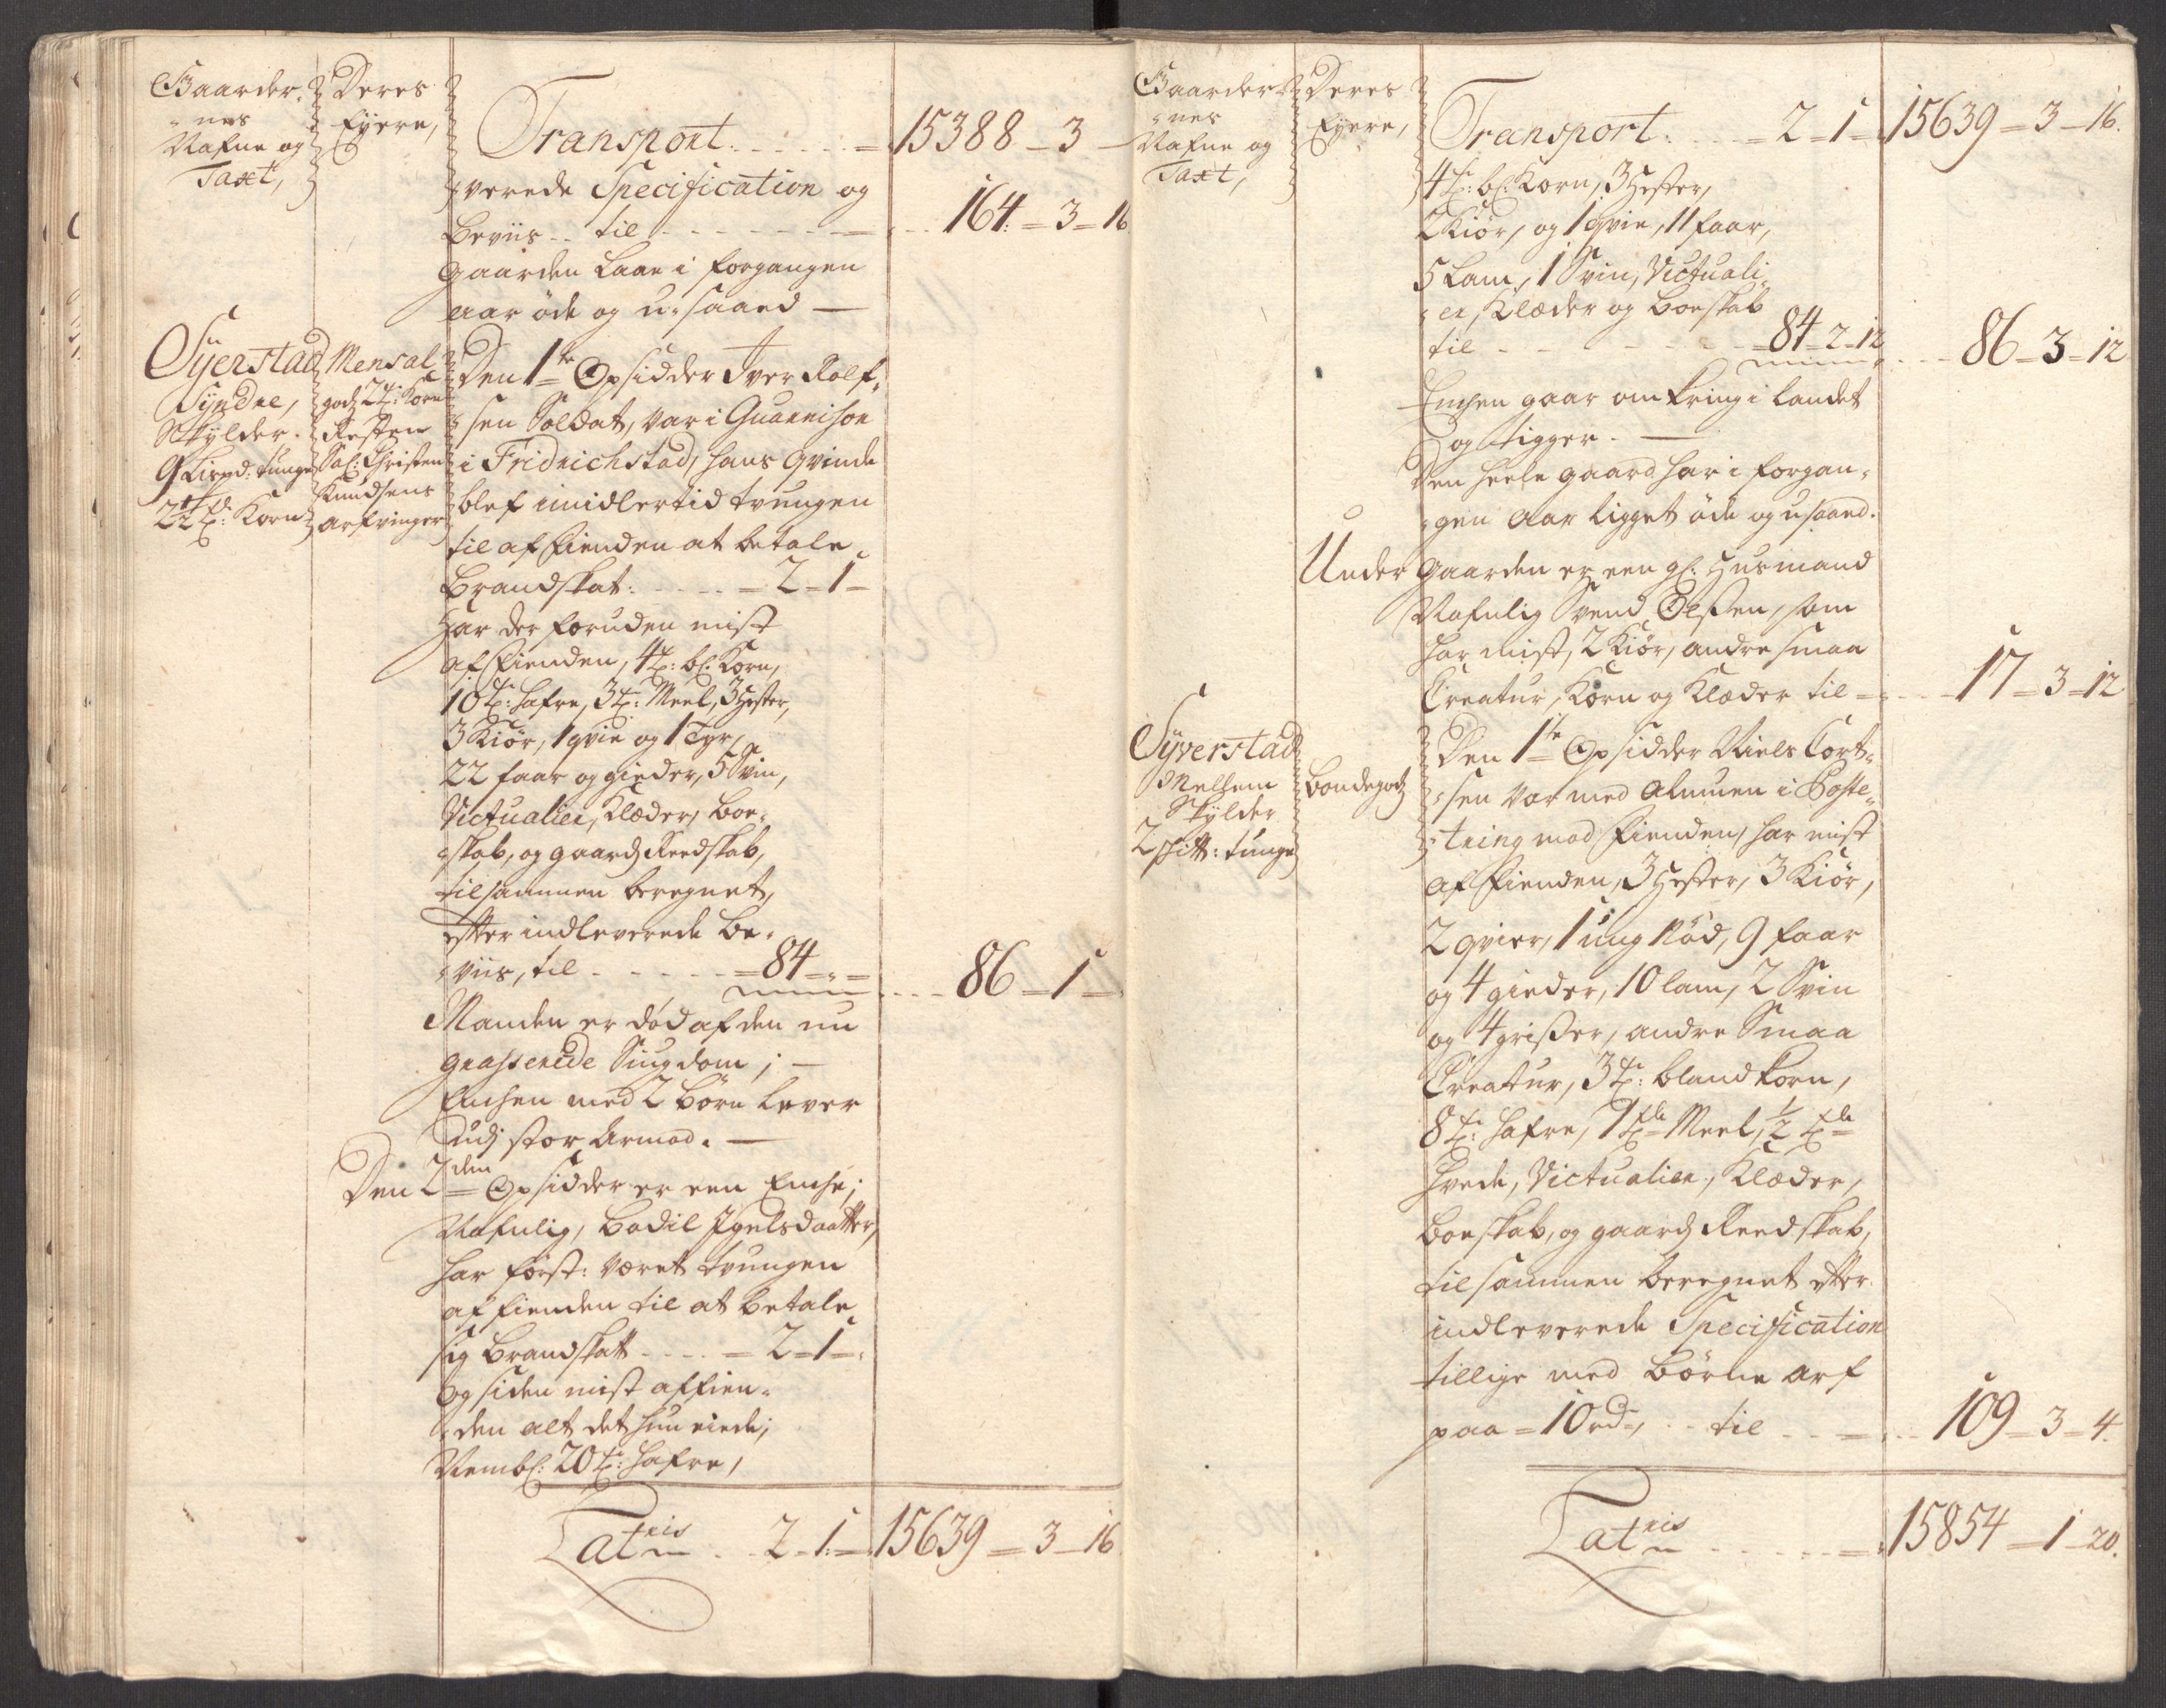 Gaarder-
"nes
Nafne og
Taxt,
Deres
Eyere,
Transport. - - - - - = 15388 - 3 -
"verede Specification og
Beviis - - til - - - - - - - = 164 = 3 = 16
gaarden Laae i forgangen
aar öde og u-saaed —
Syerstad
Syndre,
Skylder.
9 Lispd: tunge
2½ Td: Korn
Mensal
godz 2 Td: Korn
Resten
Sal: Christen
Knudsens
arfvinger
Den 1te Opsidder Iver Rolf-
"sen Soldat, var i Guarnison
i Fridrichstad, hans qvinde
blef imidlertid tvungen
til af Fienden at betale
Brandskat: - - - - = 2 - 1 -
har der foruden mist
af Fienden, 4 Td: bl: Korn,
10 Td: hafre, 3 Td: Meel, 3 hester,
3 Kiör, 1 qvie og 1 Tyr,
22 faar og gieder, 5 Svin,
Victualier, Klæder, boe-
"skab, og gaards Reedskab,
tilsammen beregnet,
efter indleverede be-
"viis, til - - - - - = 84 - " - 86 - 1 -
Manden er död af den nu
grasserede Siugdom; —
Enchen med 2 börn lever
udj stor Armod. —
Den 2den Opsidder er een Enche;
Nafnlig, Bodil Igelsdaatter,
har först: været tvungen
af fienden til at betale
sig Brandskatt - - - - = 2 - 1 - "
og siden mist af fien-
"den alt det hun eiede;
Nembl: 20 Td: hafre,
Latris - - 2 - 1: - 15639 = 3 - 16
Gaarder-
"nes
Nafne og
Taxt,
Deres
Eyere,
Transport: - - = 2 - 1 - 15639 = 3 - 16.
4 Td: bl: Korn, 3 hester,
2 Kiör, og 1 qvie, 11 faar,
5 Lam, 1 Svin, Victuali-
"er, Klæder og boeskab
til - - - - - - - 84 - 2 - 12 - - - 86 - 3 - 12
Enchen gaar omkring i landet
og tigger. —
Den heele gaard har i forgan-
"gen aar ligget öde og usaaed.
Under gaarden er een gl: Husmand
Nafnlig Svend Olsen, som
har mist, 2 Kiör, andre smaa
Creatur, Korn og Klæder til = - - - 17 = 3 = 12
Syverstad
Mellem
Skylder
2 Skitt: tunge
bondegodz
Den 1te Opsidder Niels Tort-
"sen var med Almuen i Poste-
"tring mod Fienden, har mist
af Fienden, 3 Hester, 3 Kiör,
2 qvier, 1 ung Nöd, 9 faar
og 4 gieder, 10 lam, 2 Svin
og 4 grisser, andre Smaa
Creatur, 3 Td: blandkorn,
8 Td: hafre, 1 Tde Meel, ½ Tde
hvede, Victualier, Klæder,
boeskab, og gaards Reedskab,
tilsammen beregnet efter
indleverede Specification
tillige med Börne Arf
paa = 10 rd, - - til - - - = 109 - 3 - 4.
Latris - - - - - - = 15854 = 1 - 20.